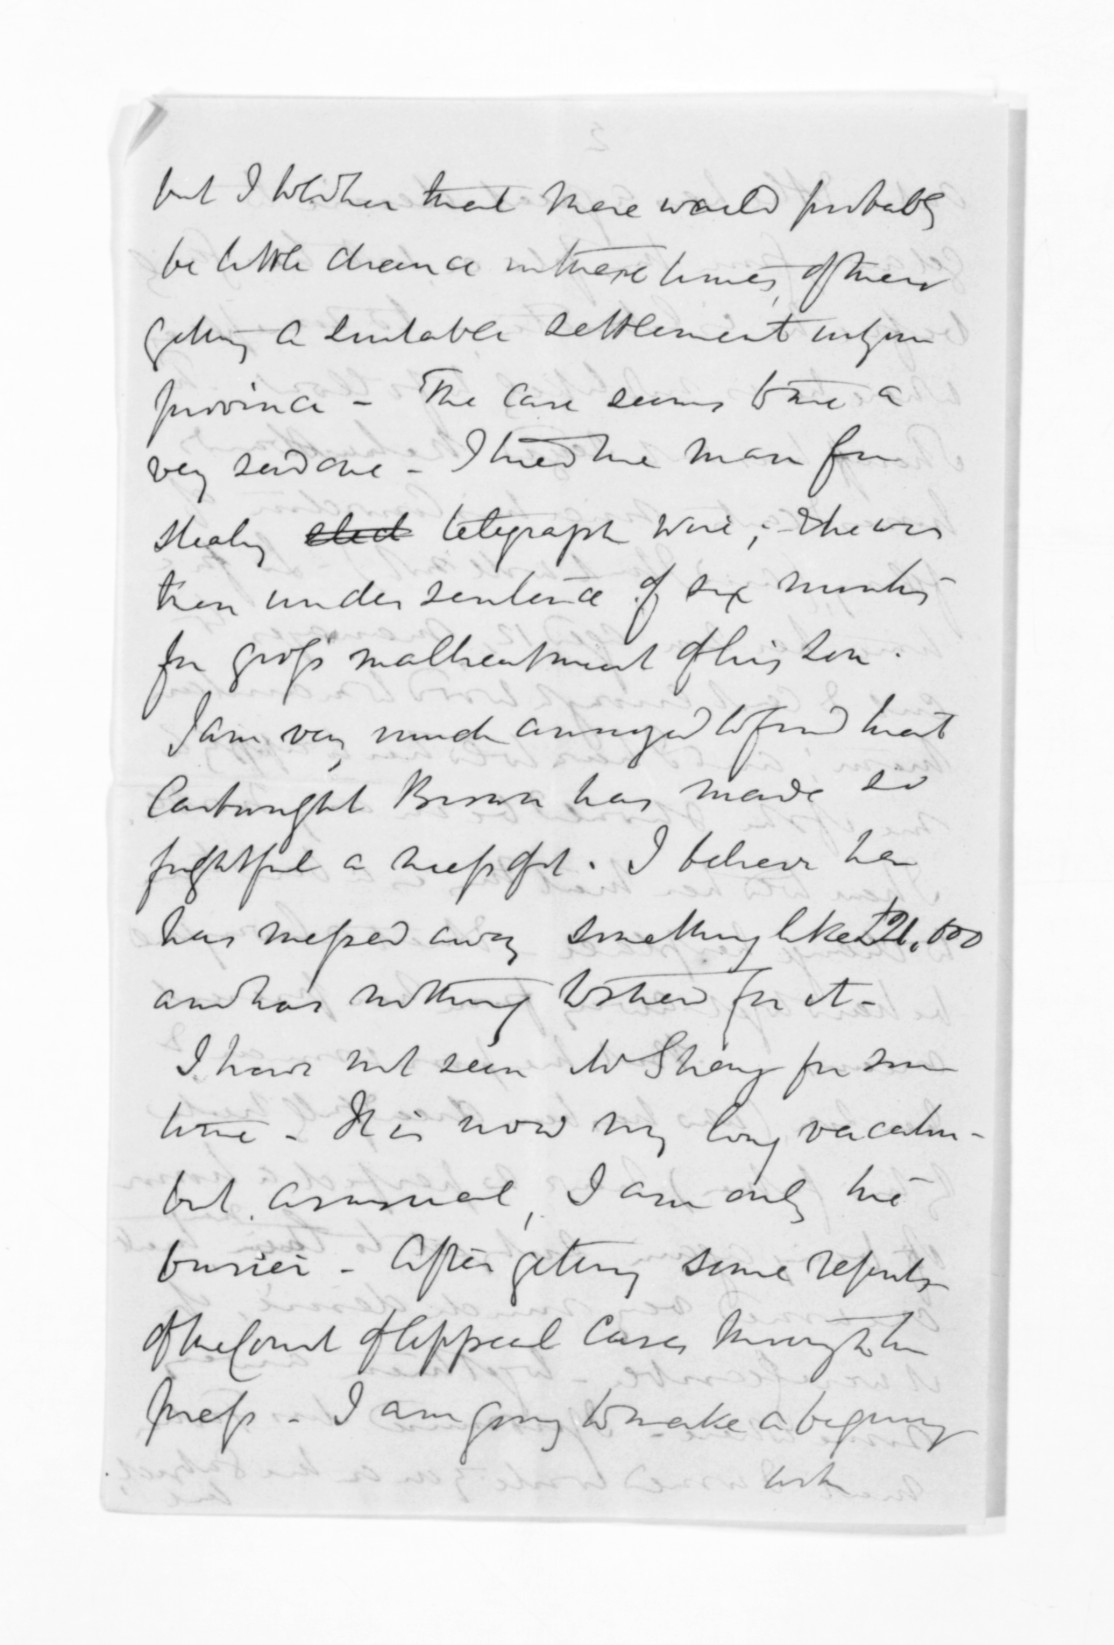 but I told her that there would probably
be little chance in these times, of their
getting a suitable settlement in your
province - The case seems to be a
very sad one - I tried the man for
stealing sted telegraph wire; & he was
then under sentence of six months
for gross maltreatment of his son.
I am very much annoyed to find that
Cartwright Brown has made so
frightful a mess of it. I believe he
has messed away something like £21,000
and has nothing to shew for it -
I have not seen for some
time - It is now my long vacation -
but, as usual, I am only the
busier - After getting some reports
of the Court of Appeal Cases through the
press - I am going to make a beginning
with